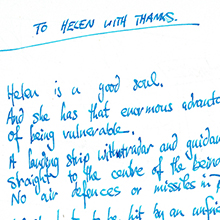 TO HELEN WITH THANKS.
Helen is a good soul.
And she has that enormous
of being vulnerable.
A landing ship without radar and
straight to the centre of the
No air defences or missiles in
to be hit by an